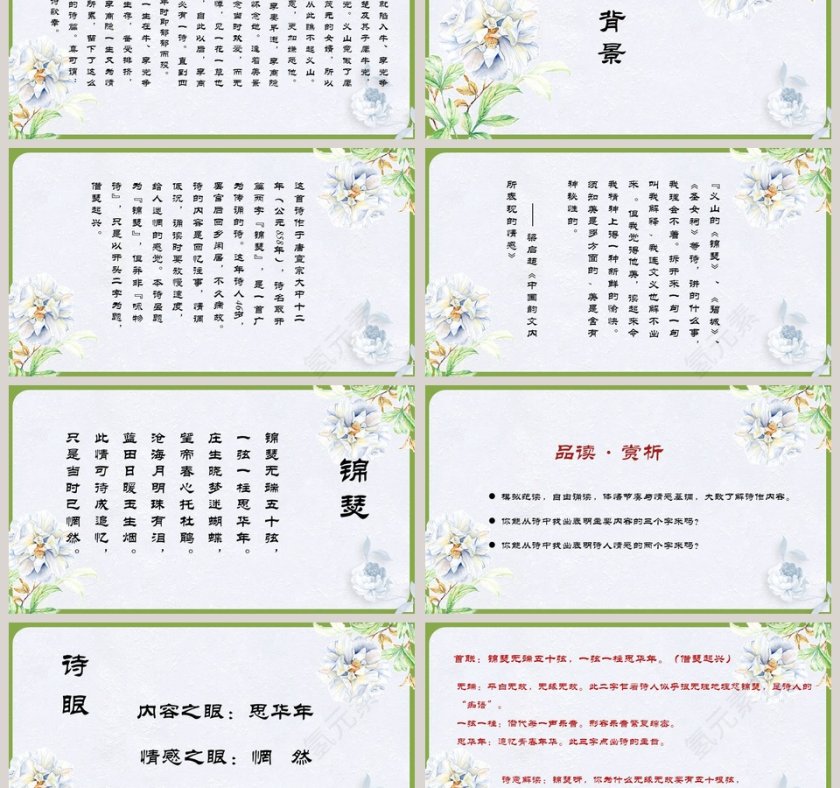 就陷入牛、李党争
楚及其子属牛党,
无,义山竟做了属
茂元的女婿,所以
从此瞧不起义山。
背景
这首诗作于唐宣宗大中十二
年(公元858年),诗名取开
篇两字『锦瑟』,是一首广
为传诵的诗。这年诗人46岁,
罢官后回乡闲居,不久病故。
诗的内容是回忆往事,情调
低沉,诵读时要放慢速度,
给人迷惘的感觉。本诗虽题
为『锦瑟』,但并非『咏物
诗』,只是以开头二字为题,
借瑟起兴。
『义山的《锦瑟》、《碧城》、
《圣女祠》等诗,讲的什么事,
我理会不着。拆开来一句一句
叫我解释,我连文义也解不出
来。但我觉得他美,读起来令
我精神上得一种新鲜的愉快。
须知美是多方面的,美是含有
神秘性的。
——梁启超《中国韵文内
所表现的情感》
锦瑟
锦瑟无端五十弦,
一弦一柱思华年。
庄生晓梦迷蝴蝶,
望帝春心托杜鹃。
沧海月明珠有泪,
蓝田日暖玉生烟。
此情可待成追忆,
只是当时已惘然。
品读·赏析
● 模拟范读,自由诵读,体悟节奏与情感基调,大致了解诗作内容。
● 你能从诗中找出表明主要内容的三个字来吗?
● 你能从诗中找出表明诗人情感的两个字来吗?
诗眼
内容之眼:思华年
情感之眼:惘 然
首联:锦瑟无端五十弦,一弦一柱思华年。(借瑟起兴)
无端:平白无故,无缘无故。此二字乍看诗人似乎很无理地埋怨锦瑟,是诗人的
“痴语”。
一弦一柱:借代每一声乐音。形容乐音繁复绵密。
思华年:追忆青春年华。此三字点出诗的主旨。
诗意解读:锦瑟呀,你为什么无缘无故要有五十根弦,
氢元素